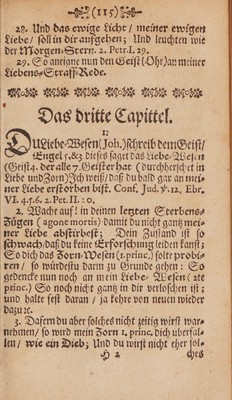 (115)
28. Und das ewige Licht / meiner ewigen
Liebe / soll in dir aufgehen; Und leuchten wie
der Morgen-Stern. 2. Petr. I. 29.
29. So aneigne nun den Geist (Ohr) an meiner
Liebens-Straff-Rede.
Das dritte Capittel.
1.
DU Liebe-Wesen (Joh.) schreib dem Geist /
Engel 5. &3 dieses saget das Liebe-Wesen
(Geist 4. der alle 7. Geister hat (durchherschet in
Liebe und Zorn) Ich weiß / daß du bald gar an mei-
ner Liebe erstorben bist. Conf. Jud. v. 12, Ebr.
VI. 4. 5. 6. 2. Pet. II. 20.
2. Wache auf! in deinen letzten Sterbens-
Zügen (agone mortis) damit du nicht gantz mei-
ner Liebe abstirbest; Dein Zustand ist so
schwach / daß du keine Erforschung leiden kanst;
So dich das Zorn-Wesen (1. princ.) solte probi-
ren / so würdestu dann zu Grunde gehen: So
gedencke nun noch an mein Liebe-Wesen (2te
princ.) So noch nicht gantz in dir verloschen ist;
und halte fest daran / ja kehre von neuen wieder
dazu ꝛc.
3. Dafern du aber solches nicht zeitig wirst war-
nehmen / so wird mein Zorn 1. princ. dich überfal-
len / wie ein Dieb; Und du wirst nicht eher sol-
H 2 ches